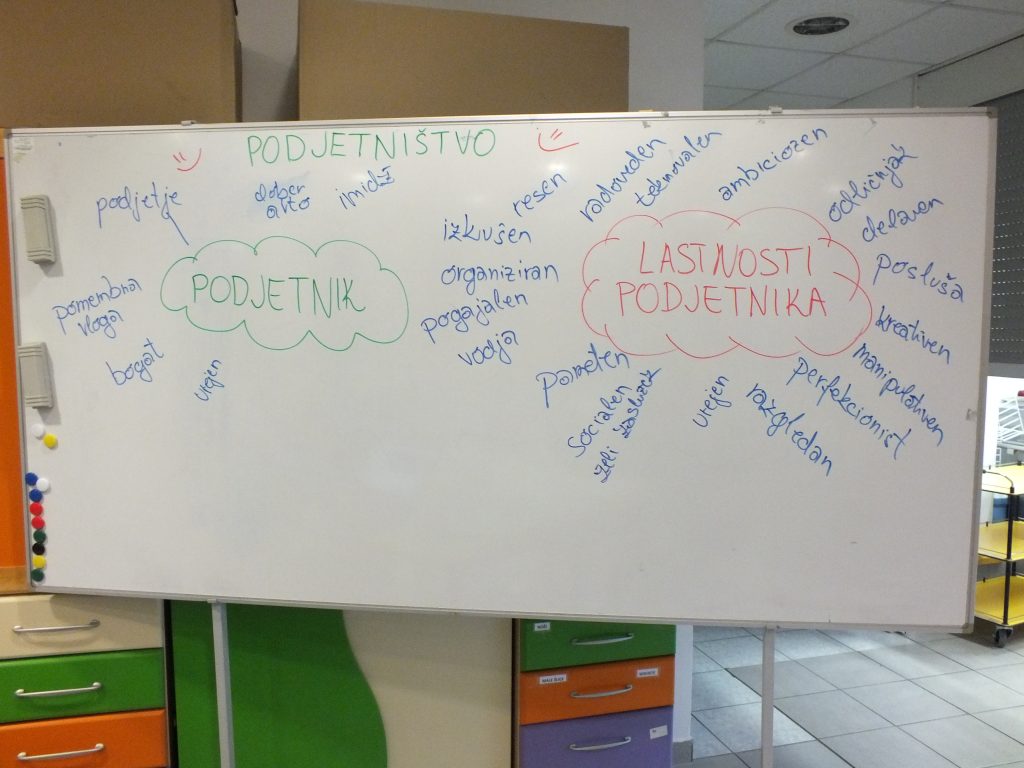 PODJETNIŠTVO
podjetje
dober
avto
imidž
PODJETNIK
pomembna
vloga
bogat
urejen
resen
izkušen
organiziran
pogajalen
vodja
radoveden
ambiciozen
LASTNOSTI
PODJETNIKA
odličnjak
delaven
posluša
kreativen
manipulativen
perfekcionist
razgledan
urejen
pameten
Socialen
želi zaslužek